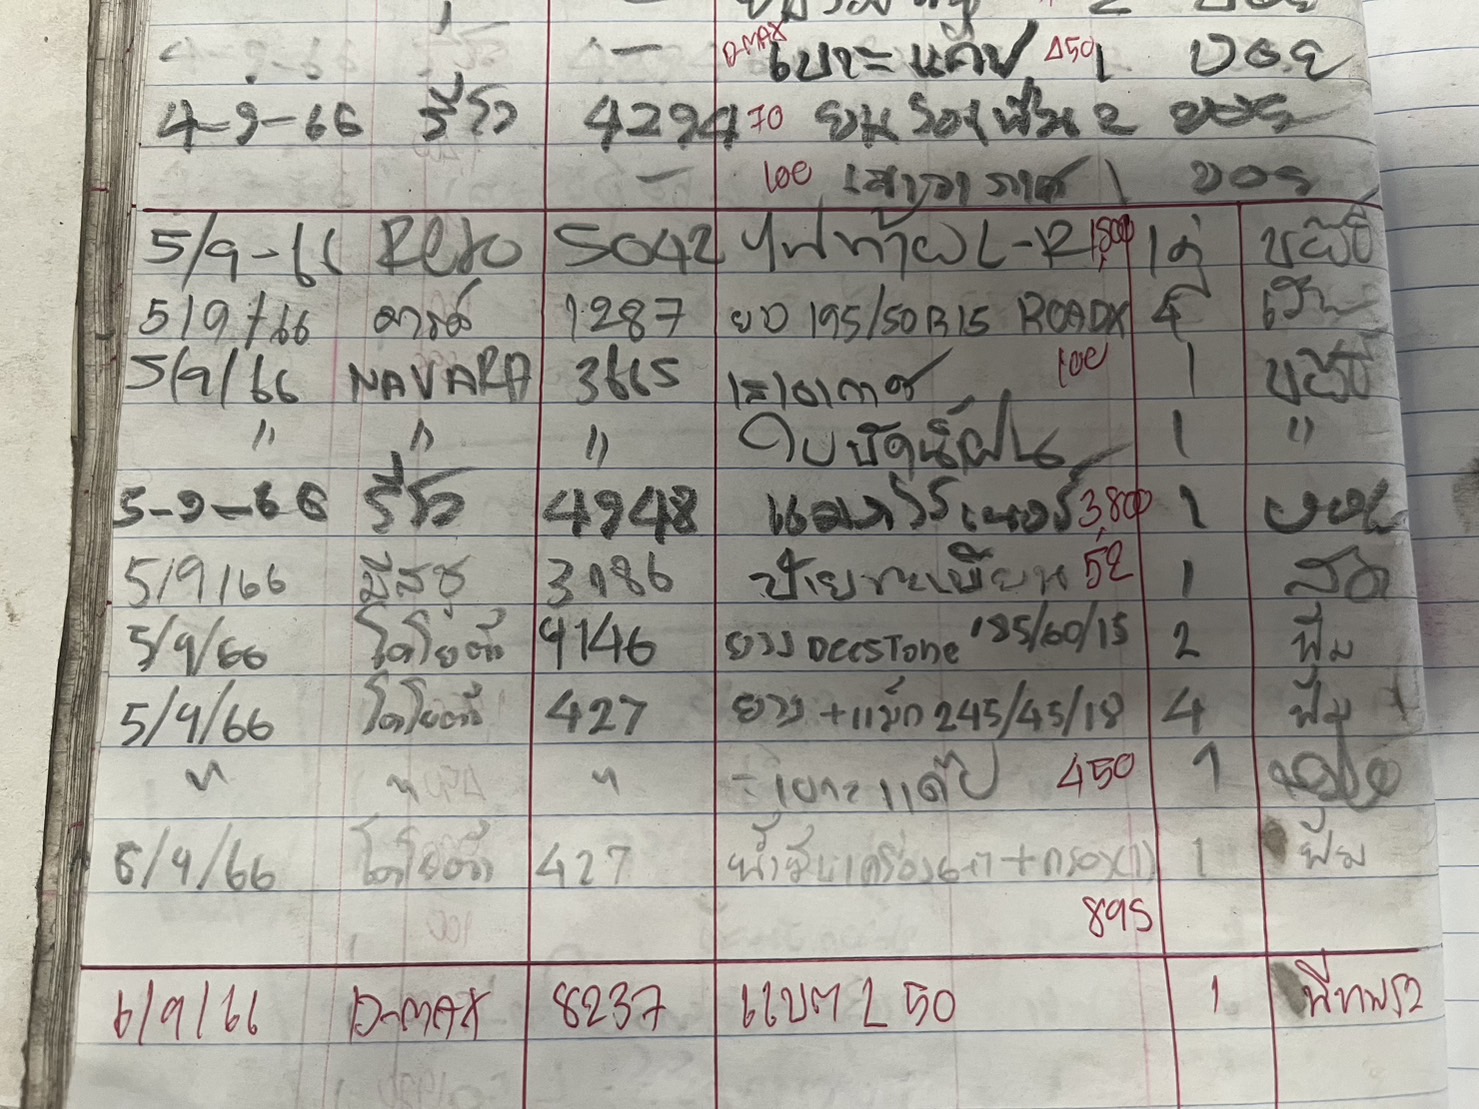 4-9-66 — D-MAX เบาะแค๊ป 450 1 บอย
4-9-66 รีโว 4294 70 ยางรองแท่น 2 บอย
— 100 เสาอากาศ 1 บอย
5/9-66 Revo 5042 ไฟท้าย L-R 1,800 1 คู่
5/9/66 1287 ยาง 195/50R15 ROADX 4
5/9/66 NAVARA 3665 เสาอากาศ 100 1
" " " ใบปัดน้ำฝน 1 "
5-9-66 รีโว 4948 3,800 1 บอย
5/9/66 อีซูซุ 3186 ป้ายทะเบียน 52 1
5/9/66 โตโยต้า 9146 ยาง DEESTONE 185/60/15 2 ฟิม
5/9/66 โตโยต้า 427 ยาง + แม็ก 245/45/18 4 ฟิม
" " " เบาะแค๊ป 450 1
5/9/66 โตโยต้า 427 น้ำมันเครื่อง 6+1 + กรอง (1) 1 ฟิม
895
6/9/66 D-MAX 8237 แบต L 50 1